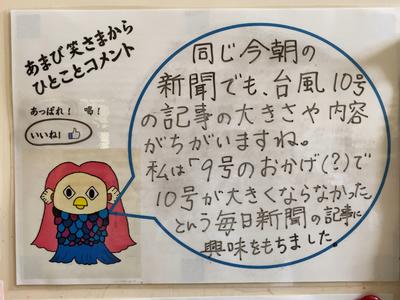 あまび笑さまから
ひとことコメント
あっぱれ！　喝！
いいね！
同じ今朝の
新聞でも、台風10号
の記事の大きさや内容
がちがいますね。
私は「9号のおかげ(?)で
10号が大きくならなかった」
という毎日新聞の記事に
興味をもちました。